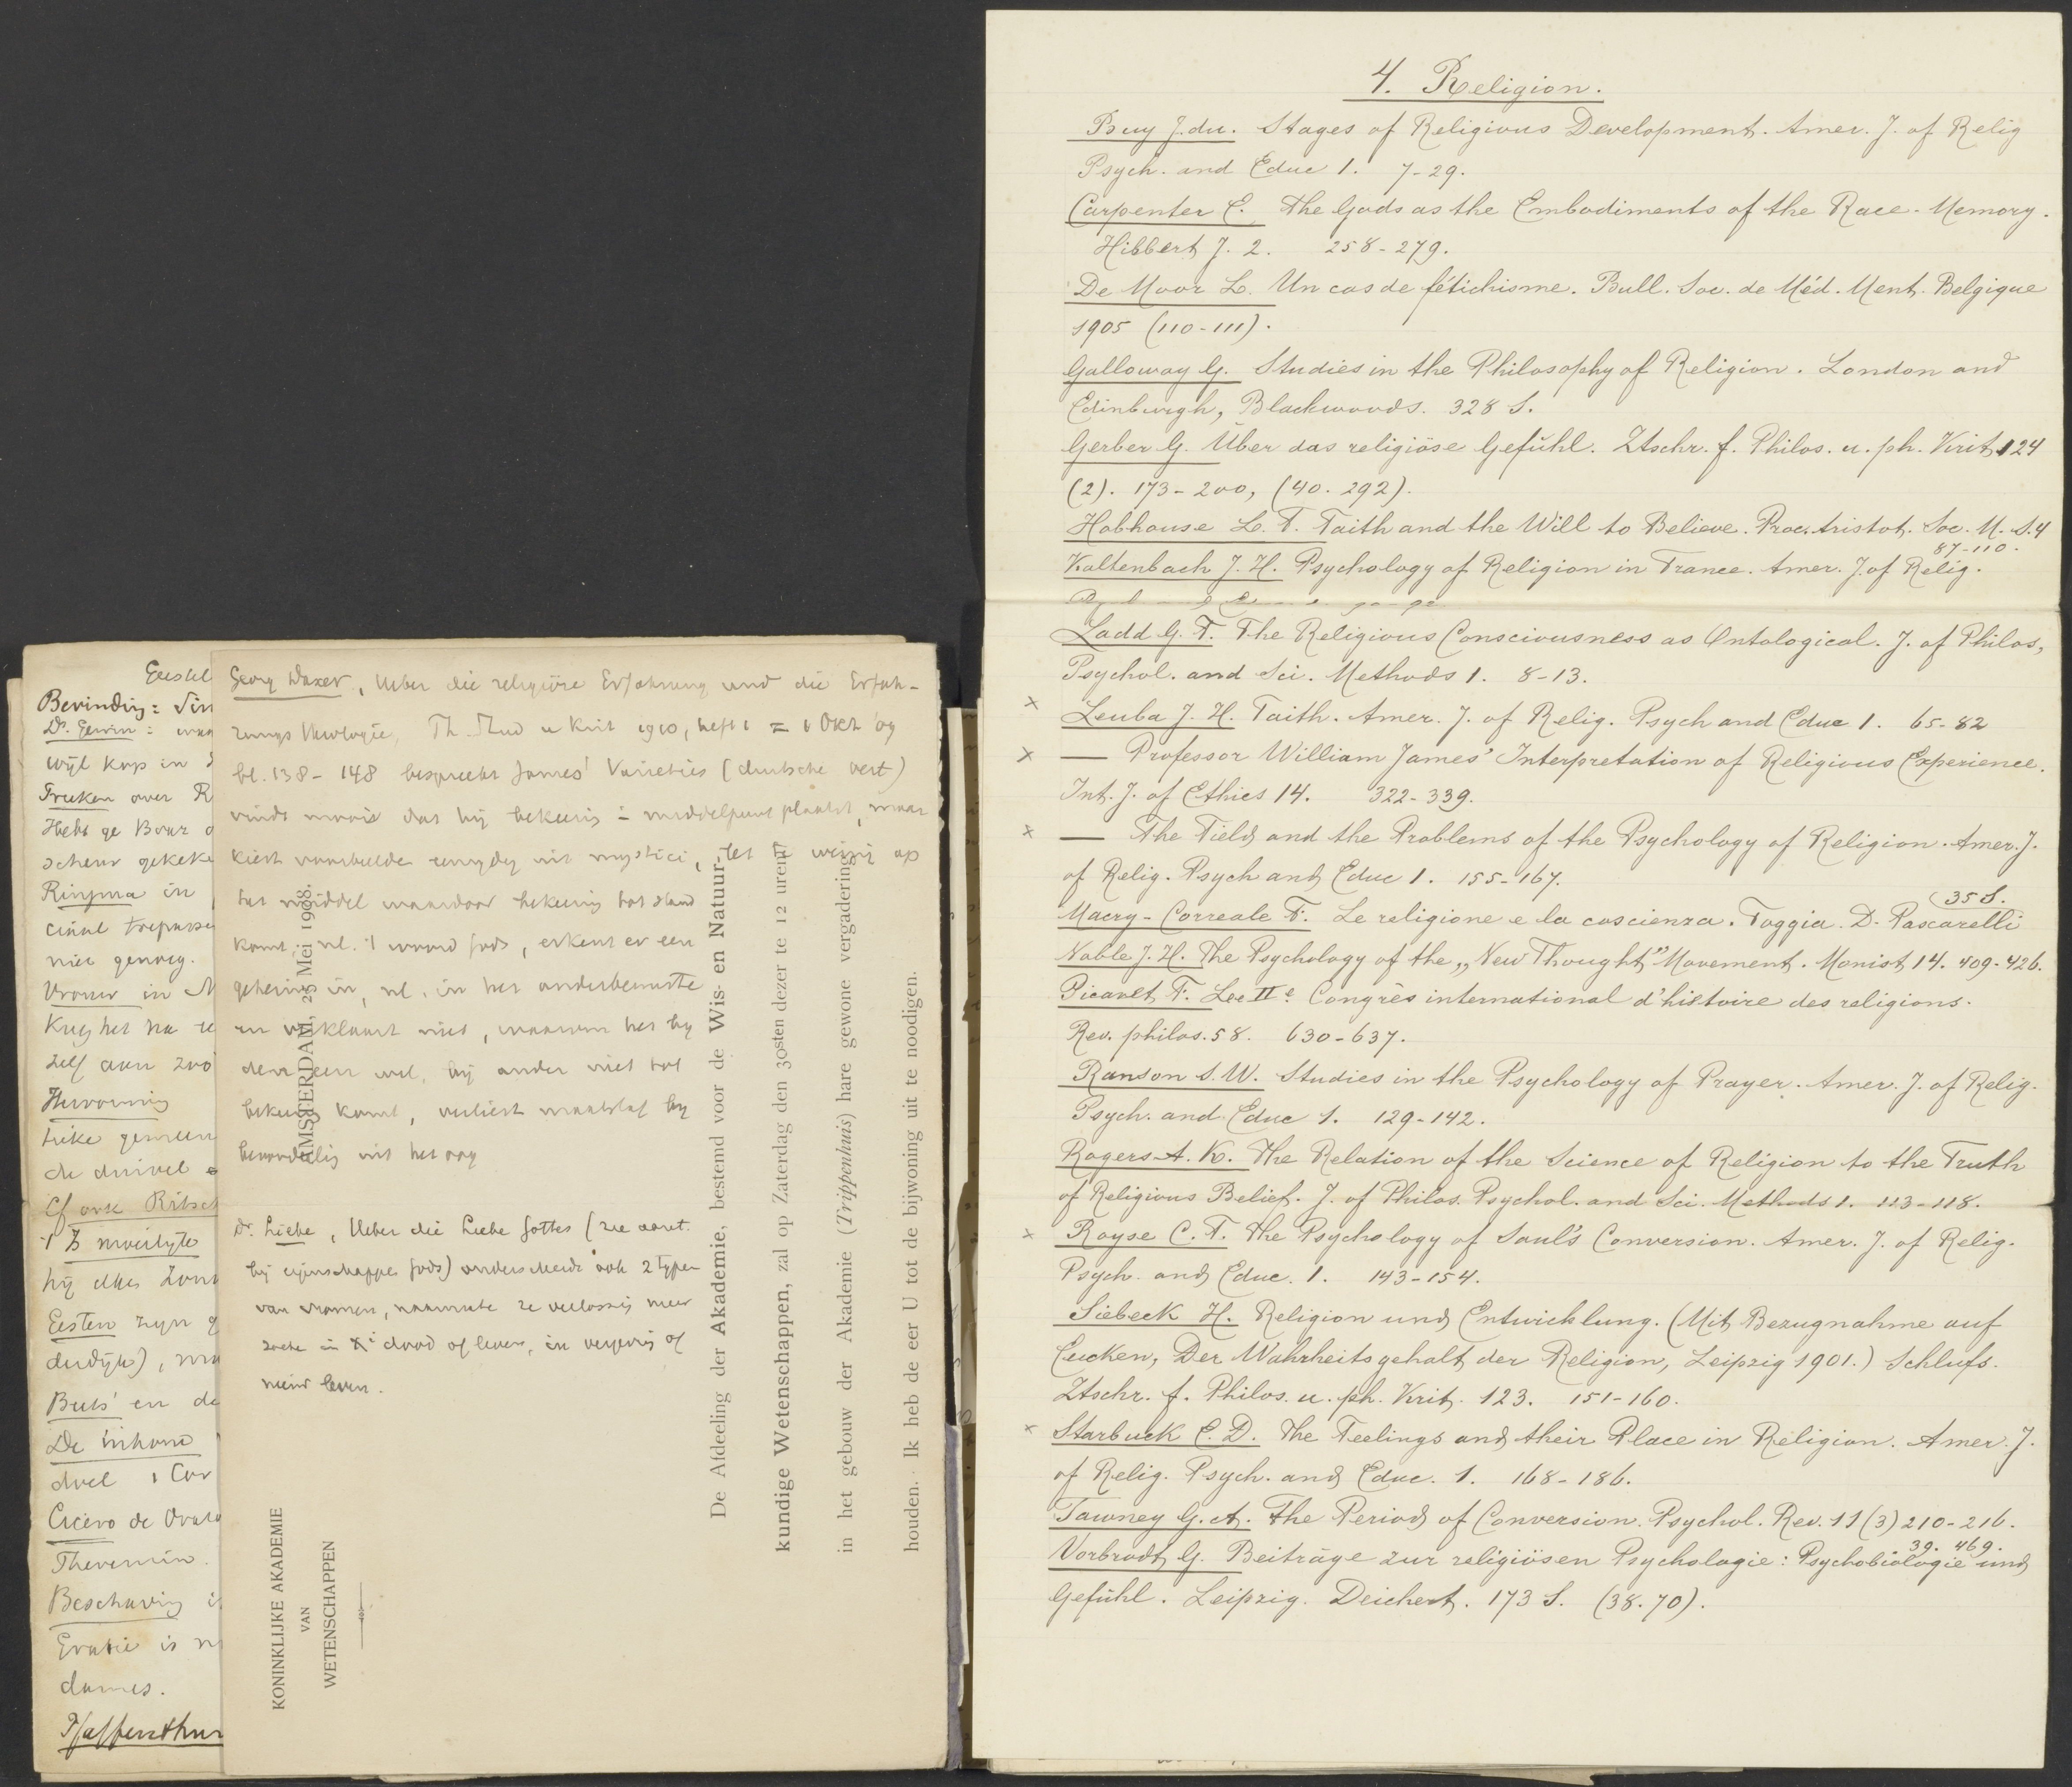 Eestel
Bevinding: Sin
Dr. Gerin:
wijl kop in
Treken over R
Hebt ge Boar
scheur gekeke
Ringma in
cinal trepasse
niet genoeg.
Vrouw in M
Krijg het na
zelf aan
Hervorming
trike gemeen
de duivel
Cf ook Ritsch
't Is moeilijkste
hij elks Zon
Eesten zijn g
dudijk), ma
Buts' en de
De inhoud
doel 1 Cor
Cicero de Orato
Theremin.
Beschaving i
Gratie is n
dames.
Georg Daxer, Ueber die religiöse Erfahrung und die Erfah-
rungs theologie, Th. Stud u Krit 1910, heft 1 = 1 Okt 09
bl. 138 - 148 bespreekt James' Varieties (deutsche vert)
vindt mooi dat hij bekeering in middelpunt plaatst, maar
kiest voorbeelden eenzijdig uit mystici, let te weinig op
het middel waardoor bekeering tot stand
komt, nl. 't woord Gods, erkent er een
geheim in, nl. in het onderbewuste
en verklaart niet, waarom het bij
den een wel, bij ander niet tot
bekeering komt, verliest maatstaf bij
beoordeeling uit het oog
Dr. Liebe, Ueber die Liebe Gottes (zie aant.
bij eigenschappen Gods) onderscheidt ook 2 typen
van vromen, naarmate ze verlossing meer
zoeken in X' dood of leven, in vergeving of
nieuw leven.
KONINKLIJKE AKADEMIE
VAN
WETENSCHAPPEN
AMSTERDAM, 25 Mei 1908.
De Afdeeling der Akademie, bestemd voor de Wis- en Natuur-
kundige Wetenschappen, zal op Zaterdag den 30sten dezer te 12 uren
in het gebouw der Akademie (Trippenhuis) hare gewone vergadering
houden. Ik heb de eer U tot de bijwoning uit te noodigen.
4. Religion.
Buy J. du. Stages of Religious Development. Amer. J. of Relig
Psych. and Educ 1. 7-29.
Carpenter E. The Gods as the Embodiments of the Race-Memory.
Hibbert J. 2. 258-279.
De Moor L. Un cas de fétichisme. Bull. Soc. de Méd. Ment. Belgique
1905 (110-111).
Galloway G. Studies in the Philosophy of Religion. London and
Edinburgh, Blackwoods. 328 S.
Gerber G. Über das religiöse Gefühl. Ztschr. f. Philos. u. ph. Krit 124
(2). 173-200, (40. 292).
Hobhouse L. T. Faith and the Will to Believe. Proc. Aristot. Soc. N. S. 4
87-110.
Kaltenbach J. H. Psychology of Religion in France. Amer. J. of Relig.
Ladd G. T. The Religious Consciousness as Ontological. J. of Philos,
Psychol. and Sci. Methods 1. 8-13.
x Leuba J. H. Faith. Amer. J. of Relig. Psych and Educ 1. 65-82
x — Professor William James' Interpretation of Religious Experience.
Int. J. of Ethics 14. 322-339.
x — The Field and the Problems of the Psychology of Religion. Amer. J.
of Relig. Psych and Educ 1. 155-167.
(35 S.
Macry-Correale F. Le religione e la coscienza. Foggia. D. Pascarelli
Noble J. H. The Psychology of the „New Thought” Movement. Monist 14. 409-426.
Picavet F. Lee IIe Congrès international d'histoire des religions.
Rev. philos. 58. 630-637.
Ranson S. W. Studies in the Psychology of Prayer. Amer. J. of Relig.
Psych. and Educ 1. 129-142.
Rogers A. K. The Relation of the Science of Religion to the Truth
of Religious Belief. J. of Philos. Psychol. and Sci. Methods 1. 113-118.
x Royse C. T. The Psychology of Saul's Conversion. Amer. J. of Relig.
Psych. and Educ. 1. 143-154.
Siebeck H. Religion und Entwicklung. (Mit Bezugnahme auf
Eucken, Der Wahrheitsgehalt der Religion, Leipzig 1901.) Schlufs.
Ztschr. f. Philos. u. ph. Krit. 123. 151-160.
x Starbuck E. D. The Feelings and their Place in Religion. Amer. J.
of Relig. Psych. and Educ. 1. 168-186.
Tawney G. A. The Period of Conversion. Psychol. Rev. 11 (3) 210-216.
39. 469.
Vorbrodt G. Beiträge zur religiösen Psychologie: Psychobiologie und
Gefühl. Leipzig. Deichert. 173 S. (38. 70).